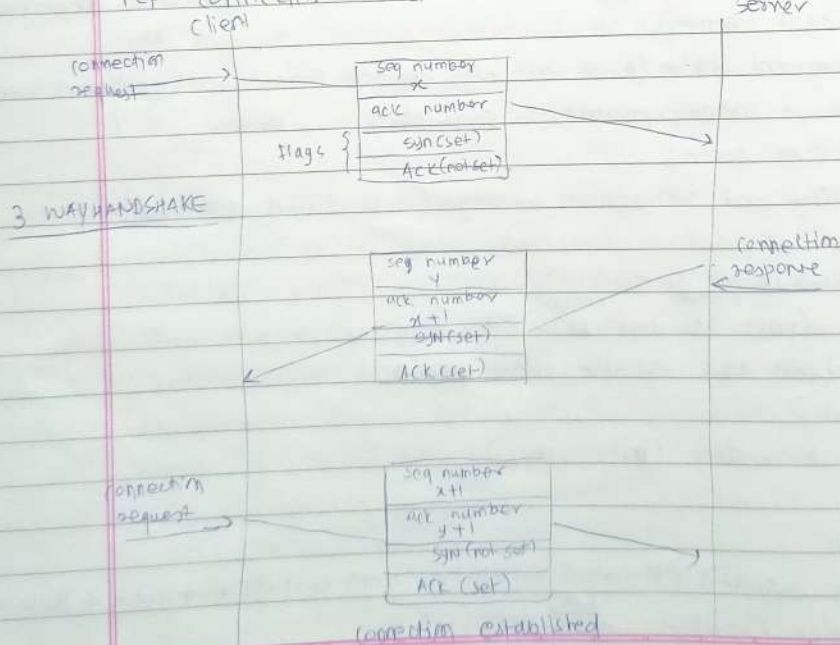 Client
server
connection
request
seq number
x
ack number
flags {
syn(set)
ACK(not set)
3 WAY HANDSHAKE
connection
response
seq number
y
ack number
x+1
SYN(set)
ACK(set)
connection
request
seq number
x+1
ack number
y+1
SYN (not set)
ACK (set)
connection established